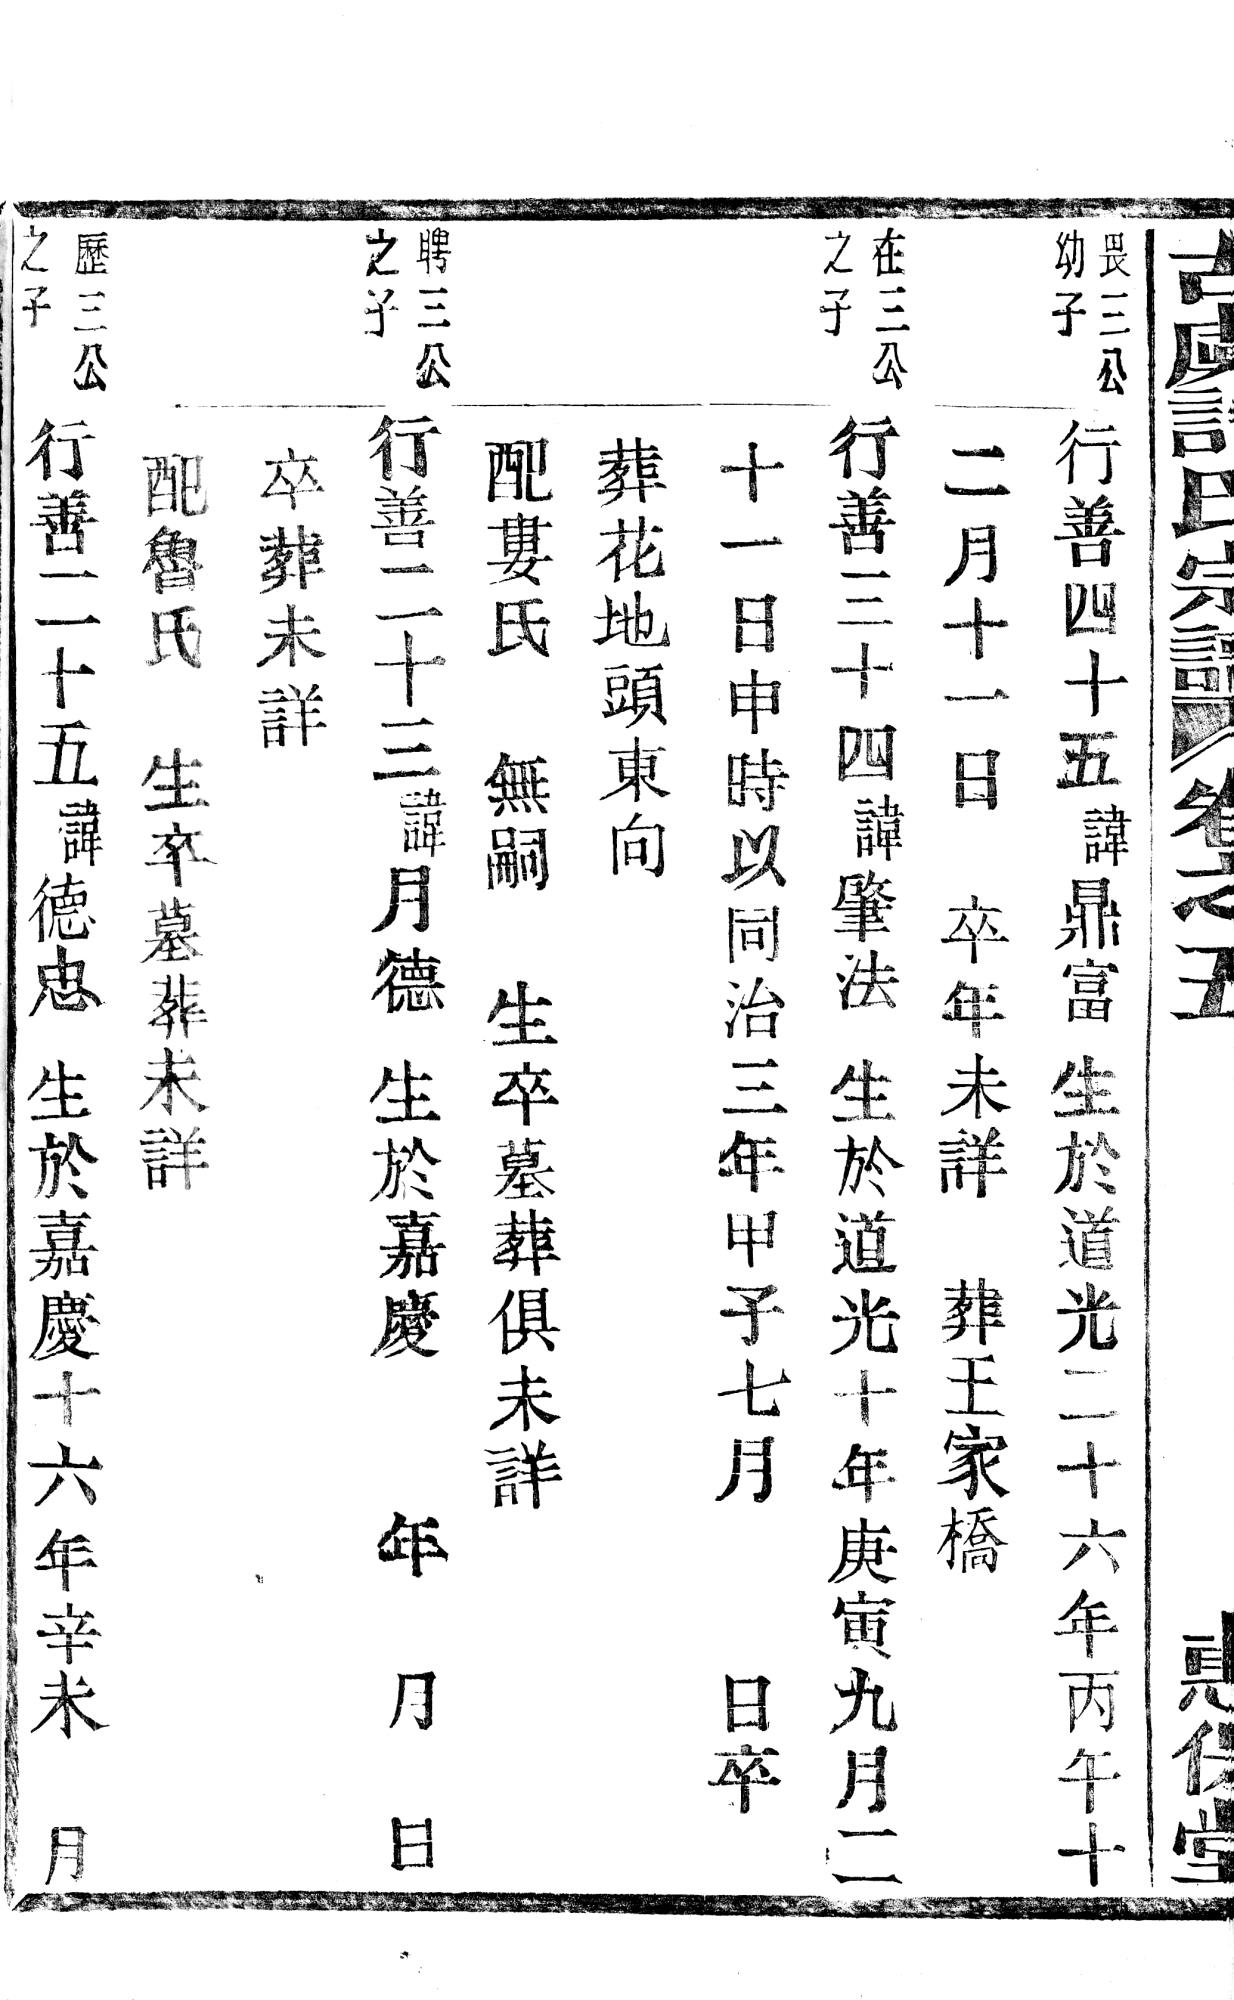 古虞許氏宗譜 卷之五 惠伦堂
畏三公
幼子
行善四十五諱鼎富 生於道光二十六年丙午十
二月十一日 卒年未詳 葬王家橋
在三公
之子
行善三十四諱肇法 生於道光十年庚寅九月二
十一日申時以同治三年甲子七月 日卒
葬花地頭東向
配婁氏 無嗣 生卒墓葬俱未詳
聘三公
之子
行善二十三諱月德 生於嘉慶 年 月 日
卒葬未詳
配魯氏 生卒墓葬未詳
歷三公
之子
行善二十五諱德忠 生於嘉慶十六年辛未 月